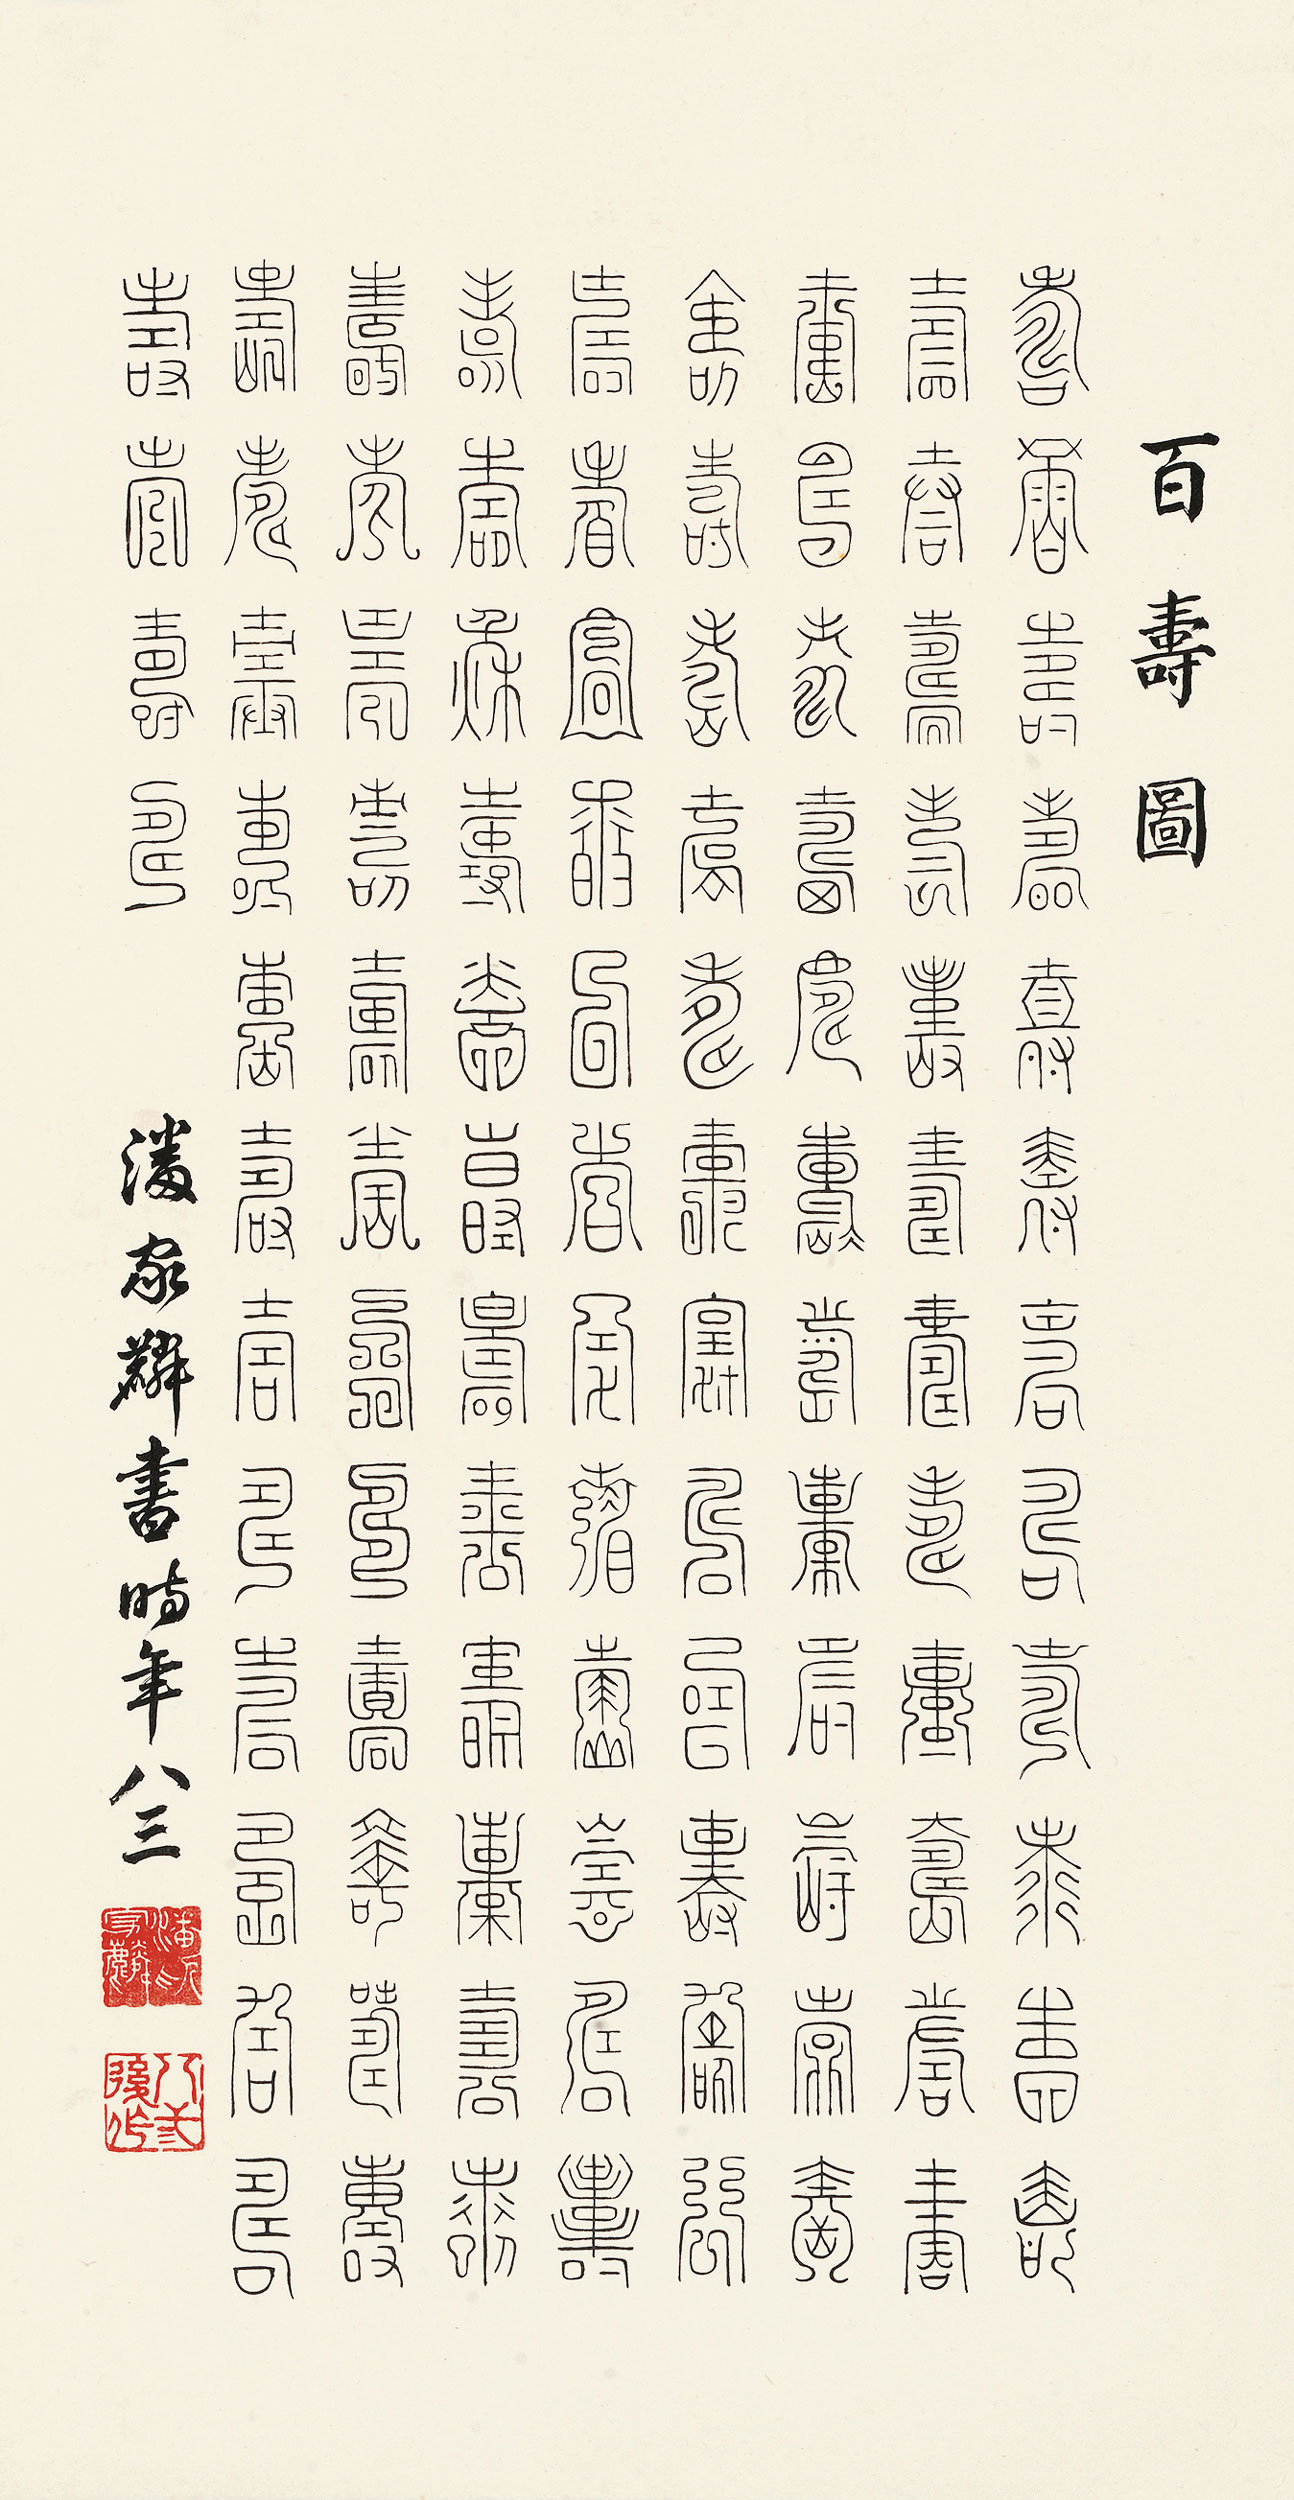 百壽圖
壽壽壽壽壽壽壽壽壽壽壽壽
壽壽壽壽壽壽壽壽壽壽壽壽
壽壽壽壽壽壽壽壽壽壽壽壽
壽壽壽壽壽壽壽壽壽壽壽壽
壽壽壽壽壽壽壽壽壽壽壽壽
壽壽壽壽壽壽壽壽壽壽壽壽
壽壽壽壽壽壽壽壽壽壽壽壽
壽壽壽壽壽壽壽壽壽壽壽壽
壽壽壽壽
潘家麟書時年八三